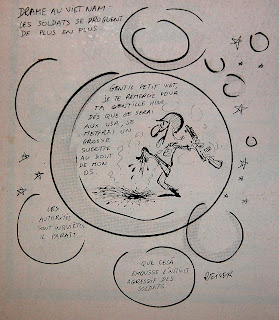 DRAME AU VIET NAM
LES SOLDATS SE DROGUENT
DE PLUS EN PLUS.
GENTIL PETIT VIET,
JE TE REMERCIE POUR
TA GENTILLE MINE,
DÈS QUE JE SERAI
AUX USA, JE
METTRAI UN
GROSSE
SUCETTE
AU BOUT
DE MON
LES
AUTORITÉS
SONT INQUIÈTES
IL PARAÎT
QUE CELA
ÉMOUSSE L'INSTINCT
AGRESSIF DES
SOLDATS
REISER